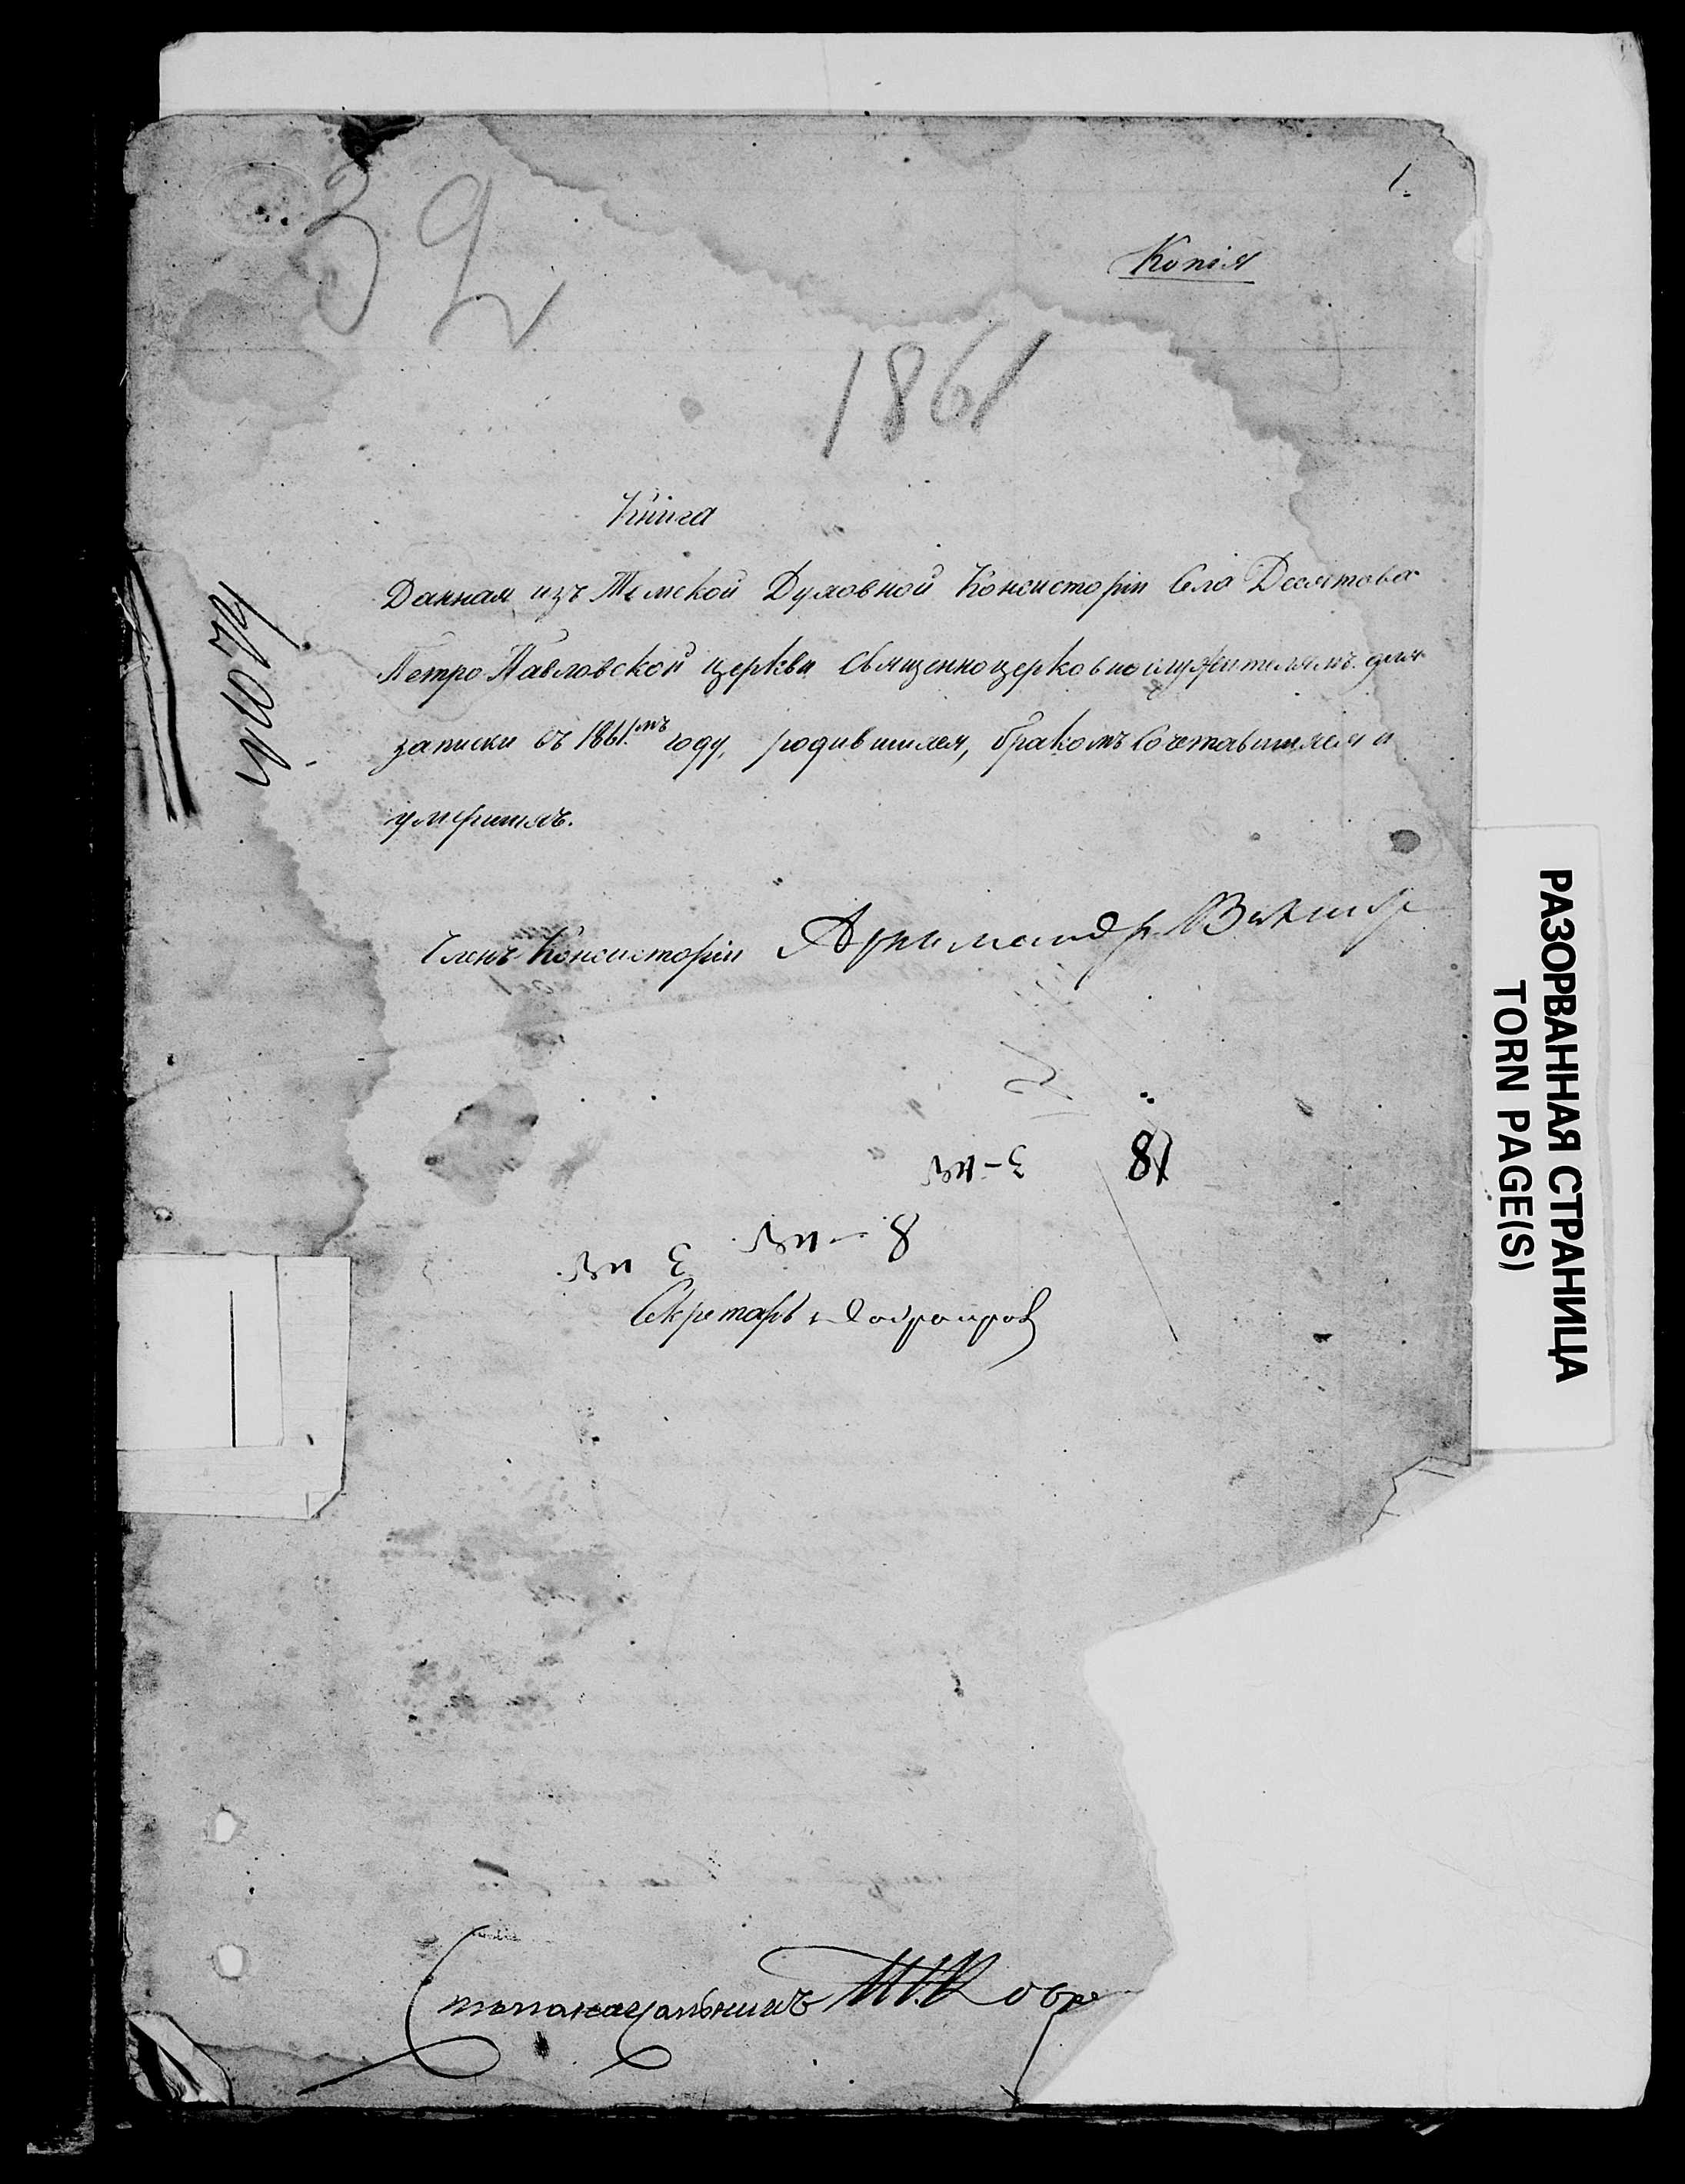 1.
Копія
39
1861
Книга
Данная изъ Томской Духовной Консисторіи Села Десятова
Петро Павловской церкви Священноцерковнослужителямъ для
записки въ 1861.мъ году, родившихся, бракомъ Сочетавшихся и
умершихъ.
Членъ Консисторіи Архимандр.
81
Секретарь
Столоначальникъ
РАЗОРВАННАЯ СТРАНИЦА
TORN PAGE(S)